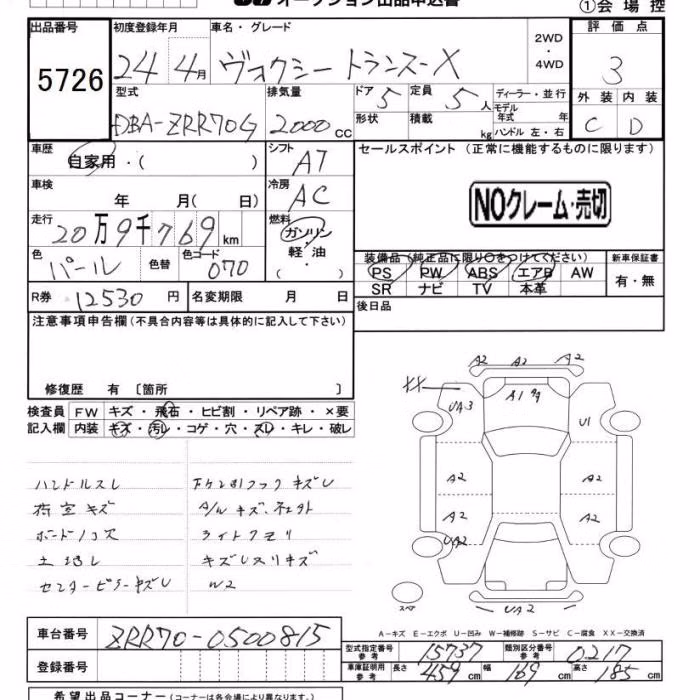 オークション出品申込書
①会 場 控
出品番号 5726
初度登録年月 24年 4月
車名・グレード ヴォクシー トランス-X
2WD・4WD
評価点 3
型式 DBA-ZRR70G
排気量 2000 cc
ドア 5
定員 5人
形状
積載 kg
ディーラー・並行
モデル年式 年
ハンドル 左・右
外装 C
内装 D
車歴 自家用・( )
シフト AT
セールスポイント (正常に機能するものに限ります)
NOクレーム・売切
車検 年 月( 日)
冷房 AC
走行 20万9千769km
燃料 ガソリン・軽油・( )
色 パール
色替
色コード 070
装備品(純正品に限り○をつけてください)
PS PW ABS エアB AW
SR ナビ TV 本革
新車保証書 有・無
R券 12530 円
名変期限 月 日
後日品
注意事項申告欄(不具合内容等は具体的に記入して下さい)
修復歴 有 〔箇所 〕
検査員記入欄
FW キズ・飛石・ヒビ割・リペア跡・×要
内装 キズ・汚レ・コゲ・穴・スレ・キレ・破レ
ハンドルスレ
荷室キズ
A/Wキズ
ライトクモリ
センターピラーキズU
W2
A2 A2 A2
XX
UA3
A1
U1
A2 A2
A2 A2
UA2
UA2
スペア
A-キズ E-エクボ U-凹み W-補修跡 S-サビ C-腐食 XX-交換済
車台番号 ZRR70-0500815
型式指定番号 参考 15737
類別区分番号 参考 0217
登録番号
車庫証明用 参考 長さ 459cm 幅 169cm 高さ 185cm
希望出品コーナー(コーナーは各会場により異なります。)